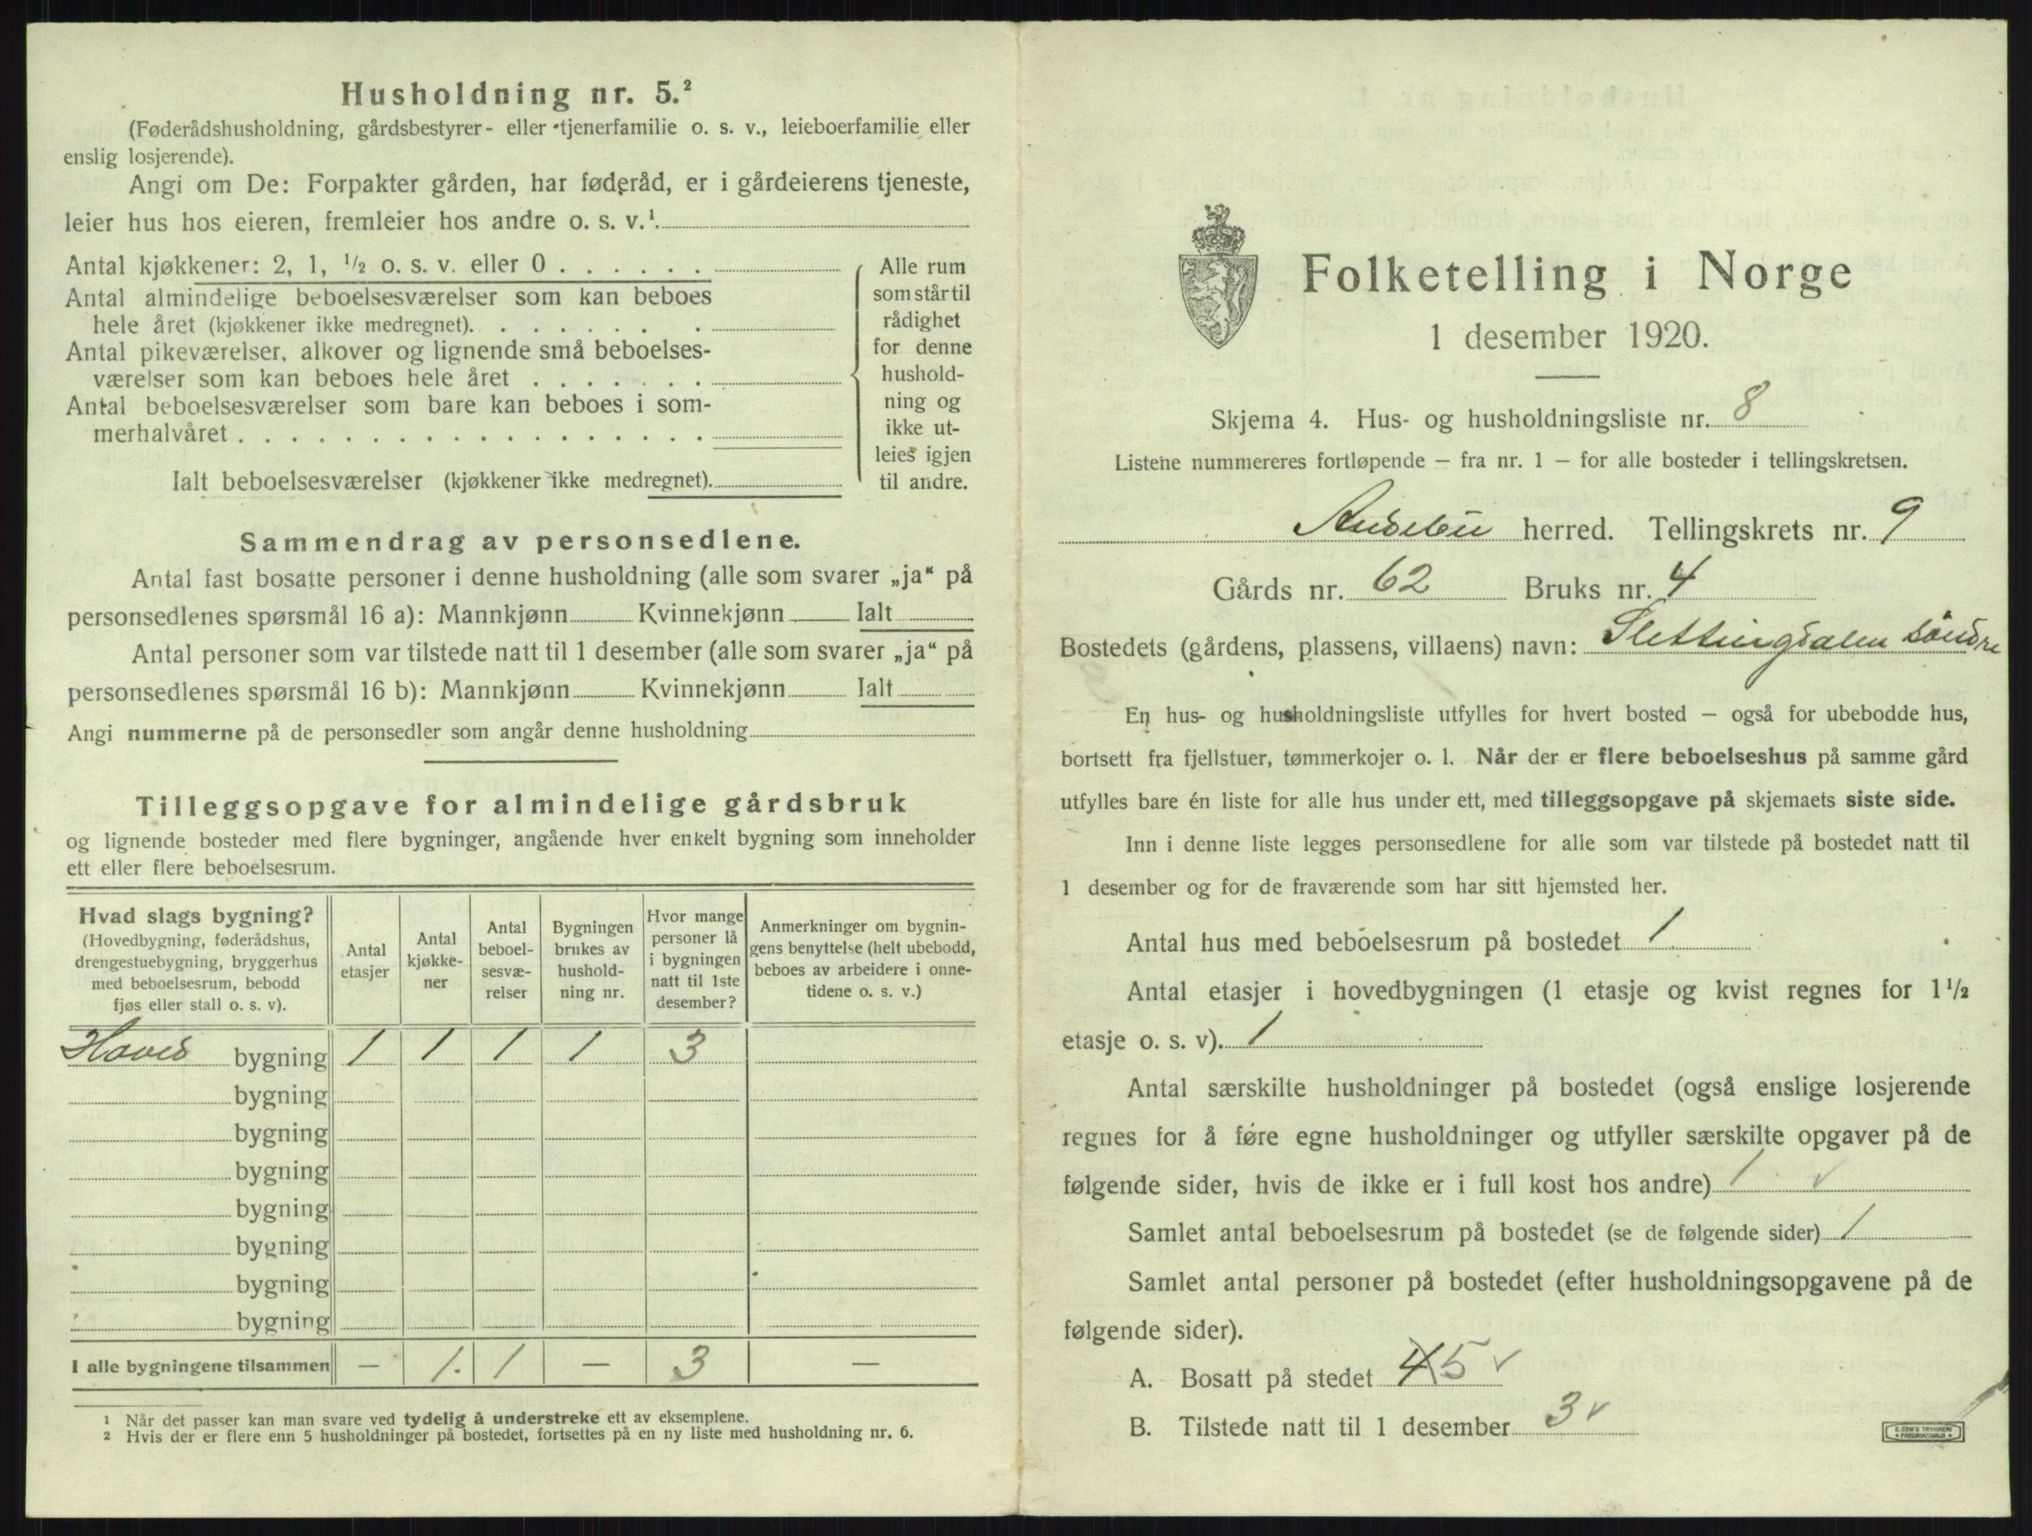 Husholdning nr. 5.²
(Føderådshusholdning, gårdsbestyrer- eller tjenerfamilie o. s. v., leieboerfamilie eller
enslig losjerende).
Angi om De: Forpakter gården, har føderåd, er i gårdeierens tjeneste,
leier hus hos eieren, fremleier hos andre o. s. v.¹
Antal kjøkkener: 2, 1, ½ o. s. v. eller 0 . . . . . .
Antal almindelige beboelsesværelser som kan beboes
hele året (kjøkkener ikke medregnet). . . . . . . .
Antal pikeværelser, alkover og lignende små beboelses-
værelser som kan beboes hele året . . . . . . .
Antal beboelsesværelser som bare kan beboes i som-
merhalvåret . . . . . . . . . . . . . . . . . .
Ialt beboelsesværelser (kjøkkener ikke medregnet).
Alle rum
som står til
rådighet
for denne
hushold-
ning og
ikke ut-
leies igjen
til andre.
Sammendrag av personsedlene.
Antal fast bosatte personer i denne husholdning (alle som svarer „ja“ på
personsedlenes spørsmål 16 a): Mannkjønn Kvinnekjønn Ialt
Antal personer som var tilstede natt til 1 desember (alle som svarer „ja“ på
personsedlenes spørsmål 16 b): Mannkjønn Kvinnekjønn Ialt
Angi nummerne på de personsedler som angår denne husholdning
Tilleggsopgave for almindelige gårdsbruk
og lignende bosteder med flere bygninger, angående hver enkelt bygning som inneholder
ett eller flere beboelsesrum.
Hvad slags bygning?
(Hovedbygning, føderådshus,
drengestuebygning, bryggerhus
med beboelsesrum, bebodd
fjøs eller stall o. s. v).
Antal
etasjer
Antal
kjøkke-
ner
Antal
beboel-
sesvæ-
relser
Bygningen
brukes av
hushold-
ning nr.
Hvor mange
personer lå
i bygningen
natt til 1ste
desember?
Anmerkninger om bygnin-
gens benyttelse (helt ubebodd,
beboes av arbeidere i onne-
tidene o. s. v.)
Hoved bygning 1 1 1 1 3
bygning
bygning
bygning
bygning
bygning
bygning
bygning
I alle bygningene tilsammen — 1. 1 — 3 —
1 Når det passer kan man svare ved tydelig å understreke ett av eksemplene.
2 Hvis der er flere enn 5 husholdninger på bostedet, fortsettes på en ny liste med husholdning nr. 6.
Folketelling i Norge
1 desember 1920.
Skjema 4. Hus- og husholdningsliste nr. 8
Listene nummereres fortløpende — fra nr. 1 — for alle bosteder i tellingskretsen.
Andebu herred. Tellingskrets nr. 9
Gårds nr. 62 Bruks nr. 4
Bostedets (gårdens, plassens, villaens) navn: Slettingsdalen søndre
En hus- og husholdningsliste utfylles for hvert bosted — også for ubebodde hus,
bortsett fra fjellstuer, tømmerkojer o. l. Når der er flere beboelseshus på samme gård
utfylles bare én liste for alle hus under ett, med tilleggsopgave på skjemaets siste side.
Inn i denne liste legges personsedlene for alle som var tilstede på bostedet natt til
1 desember og for de fraværende som har sitt hjemsted her.
Antal hus med beboelsesrum på bostedet 1
Antal etasjer i hovedbygningen (1 etasje og kvist regnes for 1½
etasje o. s. v). 1
Antal særskilte husholdninger på bostedet (også enslige losjerende
regnes for å føre egne husholdninger og utfyller særskilte opgaver på de
følgende sider, hvis de ikke er i full kost hos andre) 1 ✓
Samlet antal beboelsesrum på bostedet (se de følgende sider) 1
Samlet antal personer på bostedet (efter husholdningsopgavene på de
følgende sider).
A. Bosatt på stedet 4 5 ✓
B. Tilstede natt til 1 desember 3 ✓